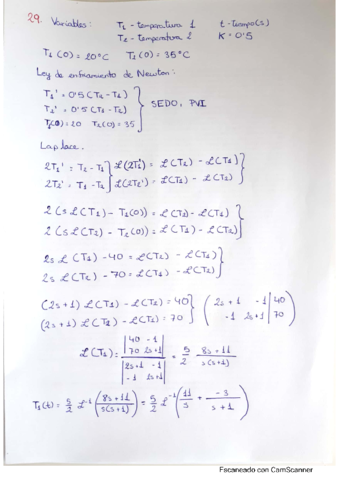 29. Variables: T₁ - temperatura 1 t - tiempo(s)
T₂ - temperatura 2 K = 0'5
T₁(0) = 20°C T₂(0) = 35°C
Ley de enfriamiento de Newton:
T₁' = 0'5(T₂-T₁)
T₂' = 0'5(T₁-T₂) } SEDO, PVI
T₁(0) = 20 T₂(0) = 35
Laplace.
2T₁' = T₂ - T₁ } ℒ(2T₁') = ℒ(T₂) - ℒ(T₁) }
2T₂' = T₁ - T₂ } ℒ(2T₂') = ℒ(T₁) - ℒ(T₂) }
2(sℒ(T₁) - T₁(0)) = ℒ(T₂) - ℒ(T₁) }
2(sℒ(T₂) - T₂(0)) = ℒ(T₁) - ℒ(T₂) }
2sℒ(T₁) - 40 = ℒ(T₂) - ℒ(T₁) }
2sℒ(T₂) - 70 = ℒ(T₁) - ℒ(T₂) }
(2s+1)ℒ(T₁) - ℒ(T₂) = 40 } ( 2s+1 -1 | 40
(2s+1)ℒ(T₂) - ℒ(T₁) = 70 } -1 2s+1 | 70 )
ℒ(T₁) = |40 -1; 70 2s+1| / |2s+1 -1; -1 2s+1| = 5/2 (8s+11)/(s(s+1))
T₁(t) = 5/2 ℒ⁻¹((8s+11)/(s(s+1))) = 5/2 ℒ⁻¹(11/s + -3/(s+1))
Escaneado con CamScanner